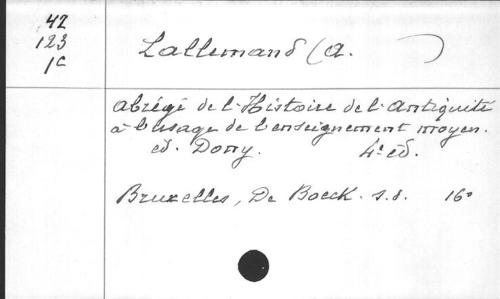 42
123
1c
Lallemand (a. )
abrégé de l'Histoire de l'antiquité
à l'usage de l'enseignement moyen.
ed. Dony. 4e éd.
Bruxelles, De Boeck. s.d. 16o